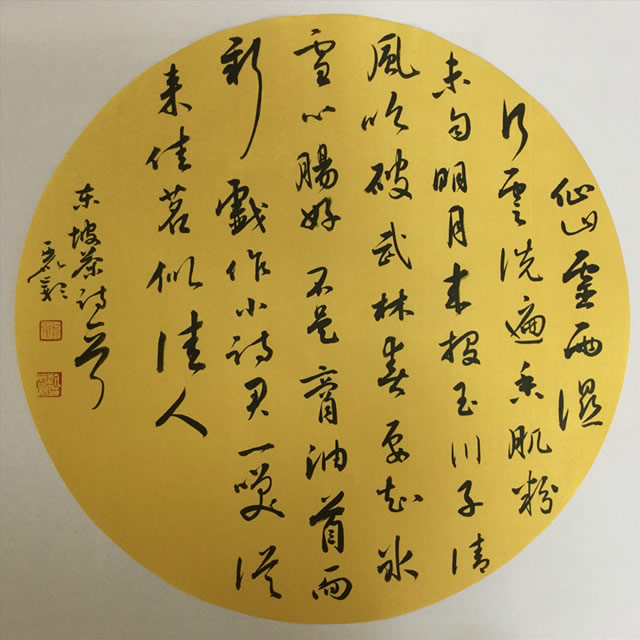 仙山靈雨濕
行雲洗遍香肌粉
未匀明月来投玉川子清
風吹破武林春要知冰
雪心腸好不是膏油首面
新戲作小詩君一咲從
来佳茗似佳人
东坡茶詩一首